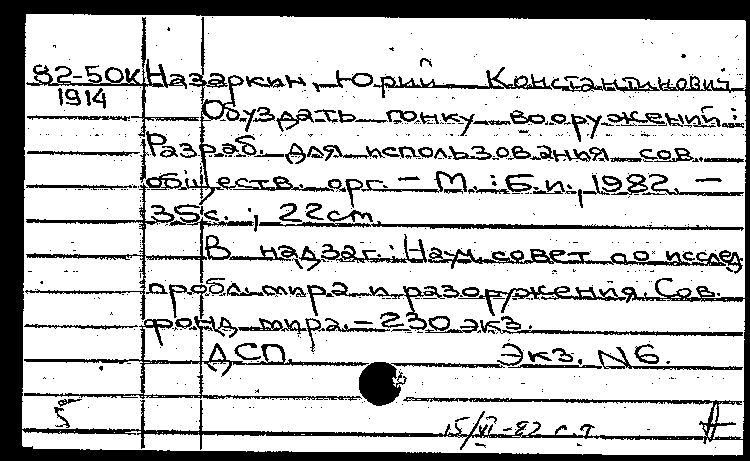 82-50к Назаркин, Юрий Константинович
1914
Обуздать гонку вооружений:
Разраб. для использования сов.
обществ. орг. – М.: Б.и., 1982. –
35с.; 22cm.
В надзаг.: Науч. совет по исслед.
пробл. мира и разоружения. Сов.
фонд мира. – 230 экз.
ДСП. Экз. N6.
15/VI-82